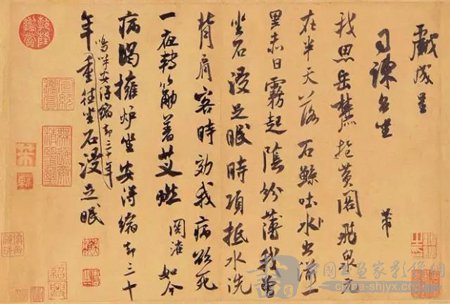 戲成呈
司諫台坐
芾
我思岳麓抱黄閣飛泉元
在半天落石鯨吐水出湔一
里赤日霧起陰紛薄我曾
坐石浸足眠時項抵水洗
背肩客時効我病欲死
一夜轉筋着艾燃 関淮如今
病渴擁爐坐安得縮却三十
嗚呼安得縮却三十年
年重往坐石浸足眠